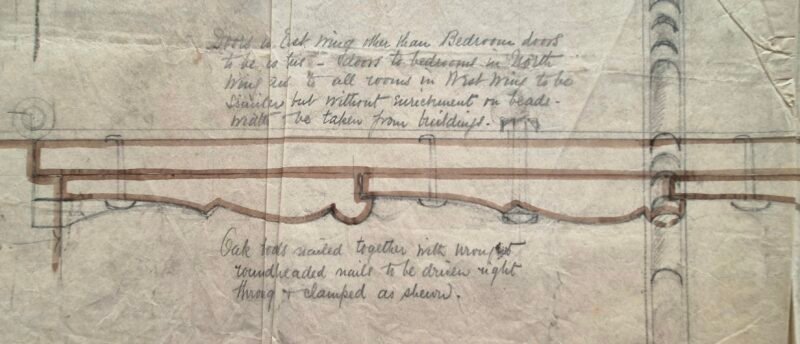 Doors in East Wing other than Bedroom doors
to be as this – doors to bedrooms in North
Wing and to all rooms in West Wing to be
similar but without enrichment on beads.
widths be taken from buildings.
Oak nailed together with wrought
roundheaded nails to be driven right
throug & clamped as shewn.